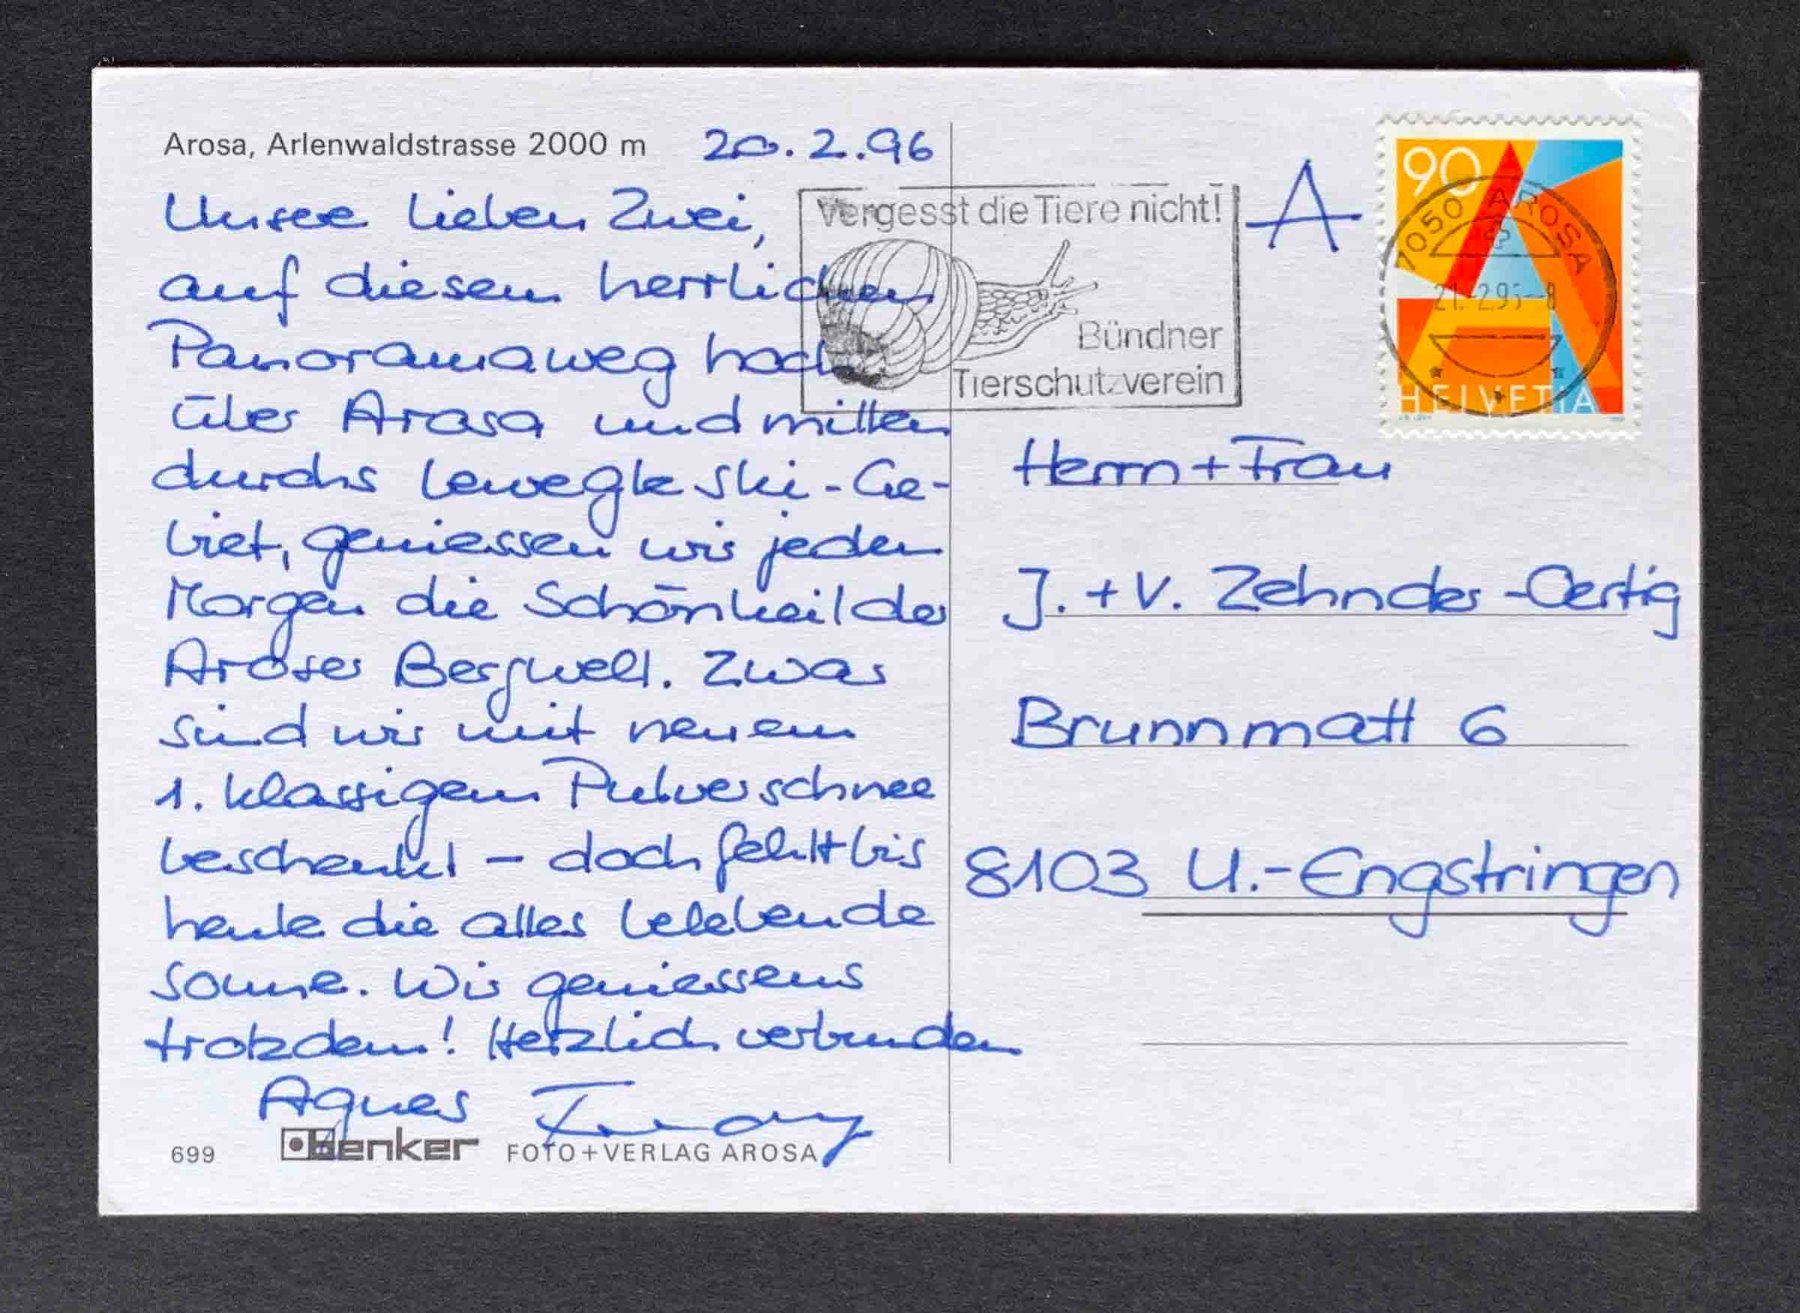 Arosa, Arlenwaldstrasse 2000 m 20.2.96
Unsere lieben Zwei,
auf diesem herrlichen
Panoramaweg hoch
über Arosa und mitten
durchs bewegte Ski-Ge-
biet, geniessen wir jeden
Morgen die Schönheit der
Aroser Bergwelt. Zwar
sind wir mit neuem
1. klassigem Pulverschnee
beschenkt – doch fehlt bis
heute die alles belebende
Sonne. Wir geniessens
trotzdem! Herzlich verbunden
Agnes
699 Denker FOTO+VERLAG AROSA
Vergesst die Tiere nicht!
Bündner
Tierschutzverein
A
90
7050 AROSA
21.-2.95-8
HELVETIA
Herrn + Frau
J. + V. Zehnder-Oertig
Brunnmatt 6
8103 U.-Engstringen